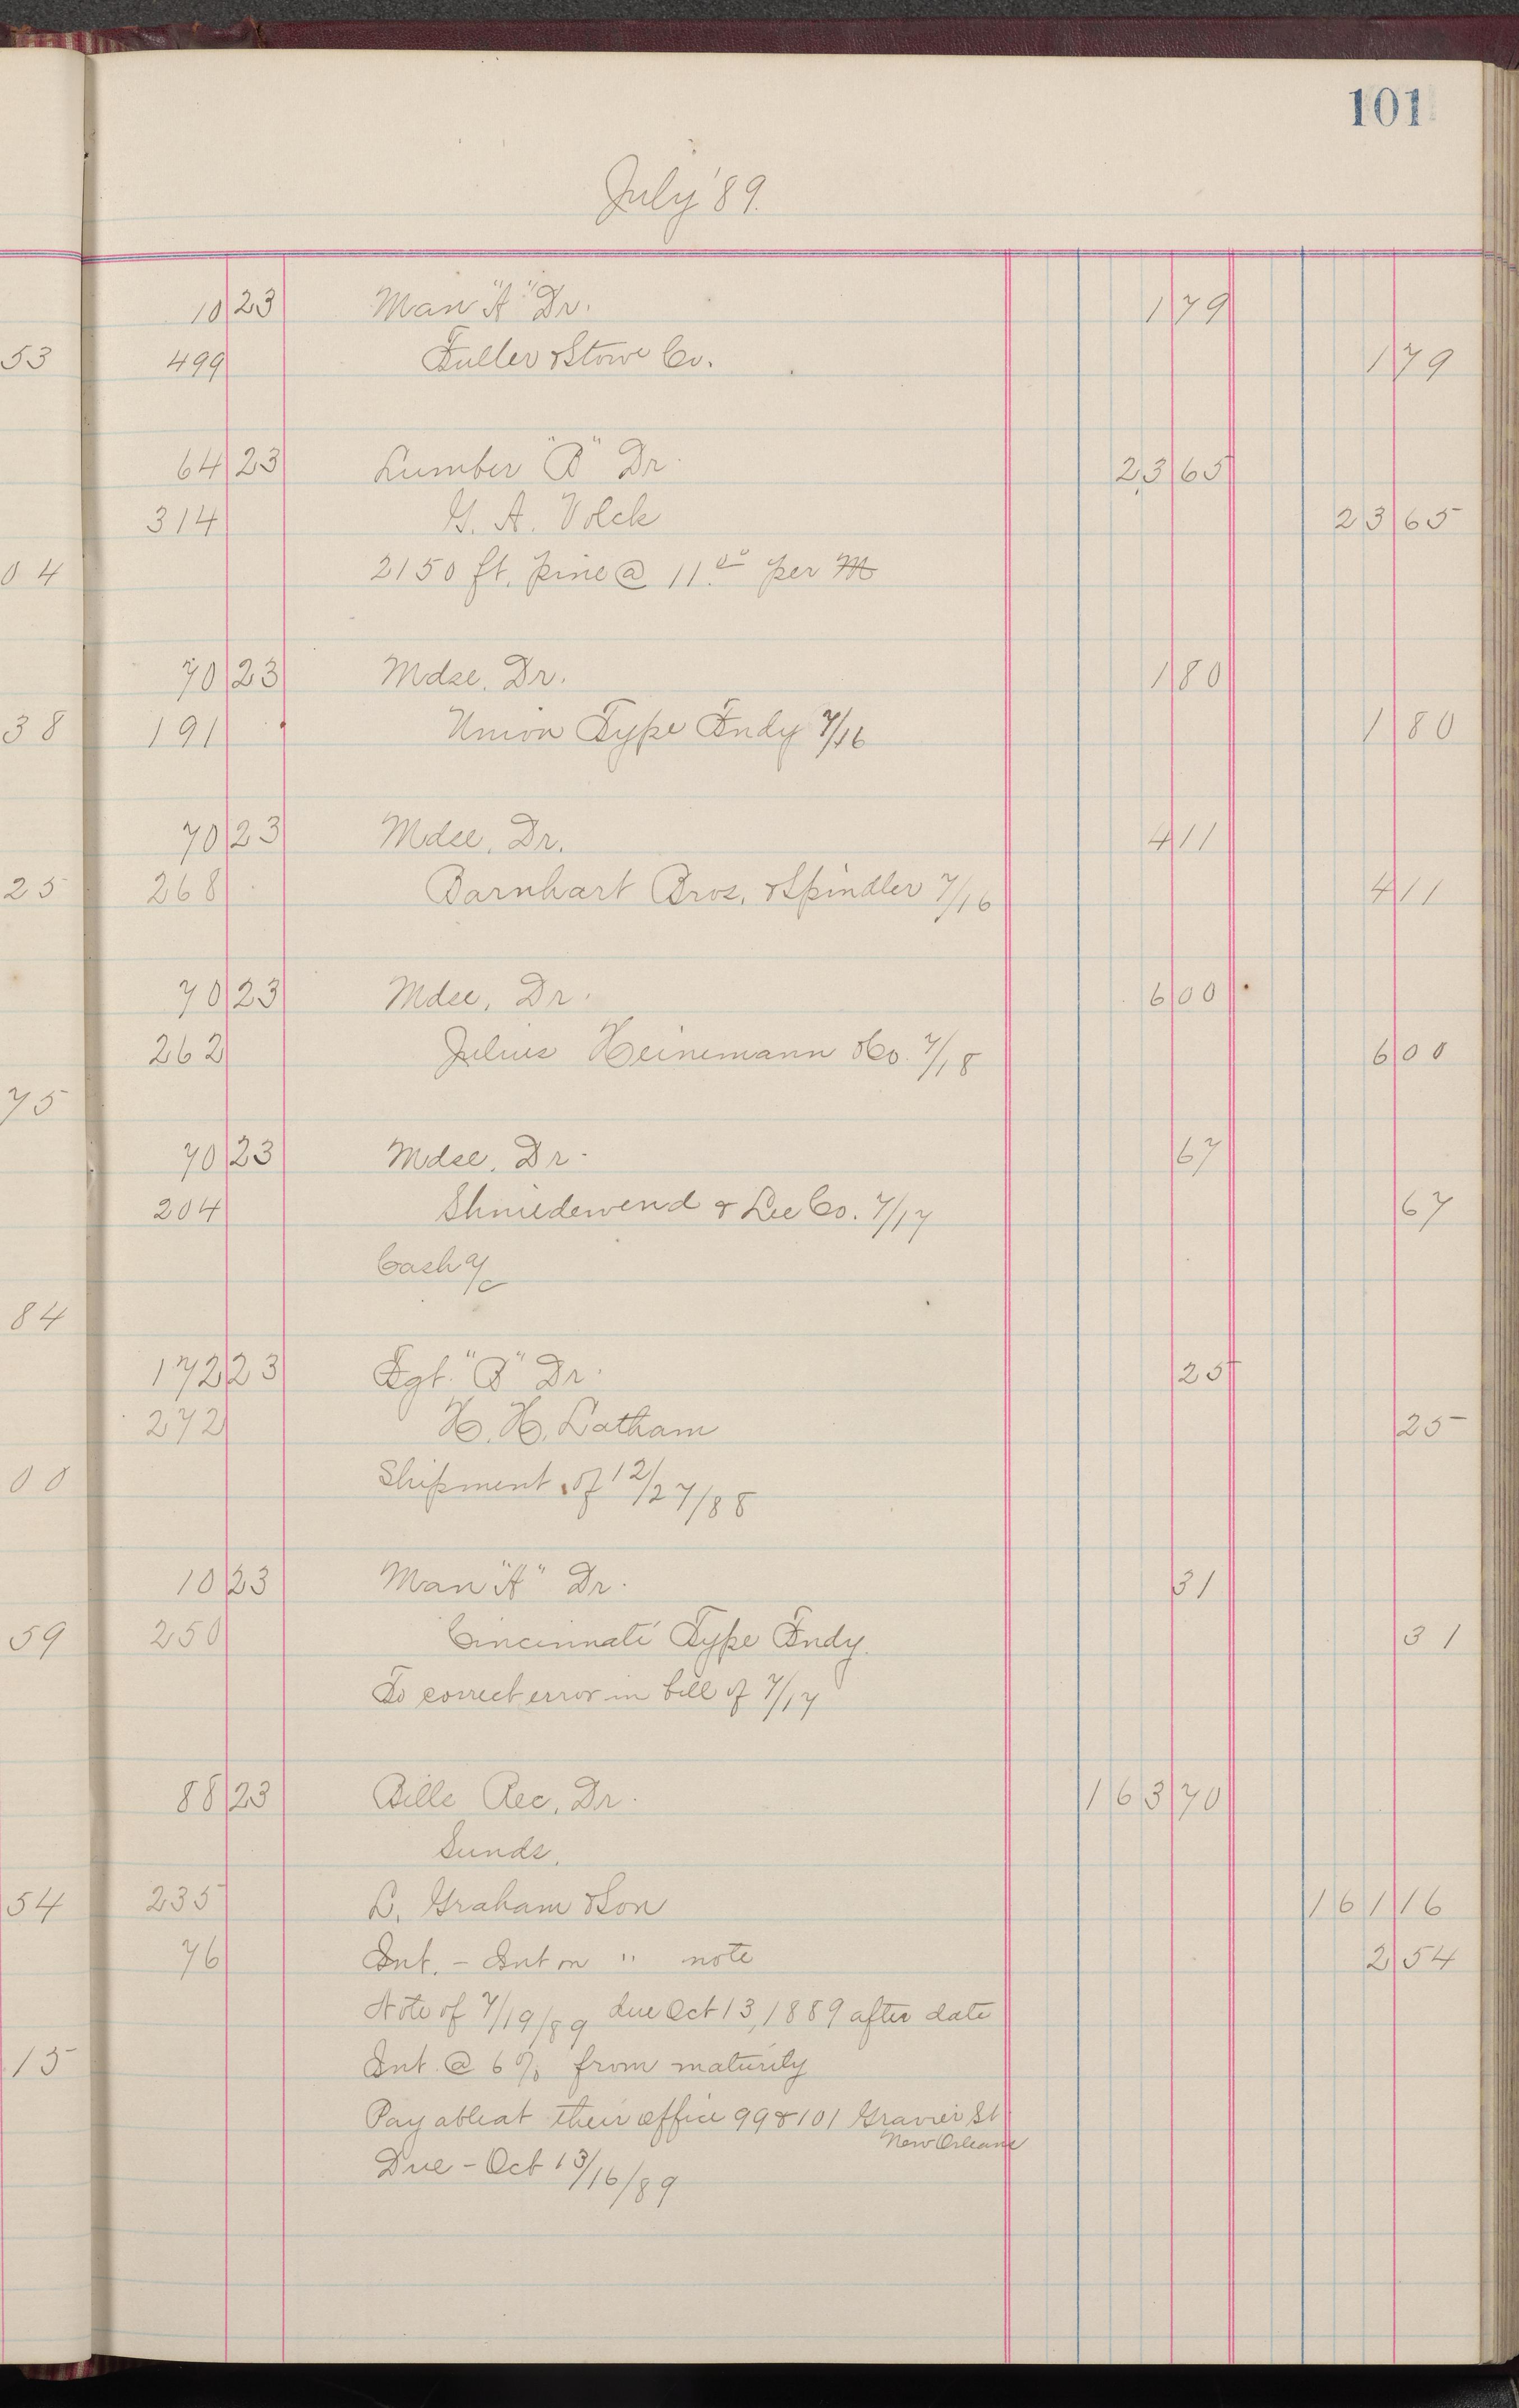 101
July '89.
10 23 Man "A" Dr. 1 79
53 499 Fuller & Stowe Co. 1 79
64 23 Lumber "B" Dr. 23 65
314 G. A. Volck 23 65
04 2150 ft. pine @ 11.00 per M
70 23 Mdse. Dr. 1 80
38 191 Union Type Fndy 7/16 1 80
70 23 Mdse. Dr. 4 11
25 268 Barnhart Bros. & Spindler 7/16 4 11
70 23 Mdse. Dr. 6 00
262 Julius Heinemann & Co. 7/18 6 00
75
70 23 Mdse. Dr. 67
204 Shniedewend & Lee Co. 7/17 67
Cash a/c
84
172 23 Fgt. "B" Dr. 25
272 H. H. Latham 25
00 Shipment of 12/27/88
10 23 Man "A" Dr. 31
59 250 Cincinnati Type Fndy. 31
To correct error in bill of 7/17
88 23 Bills Rec. Dr. 163 70
Sunds.
54 235 L. Graham & Son 161 16
76 Int. - Int on " note 2 54
Note of 7/19/89 due Oct 13, 1889 after date
15 Int. @ 6% from maturity
Payable at their office 99 & 101 Gravier St
New Orleans
Due - Oct 13/16/89